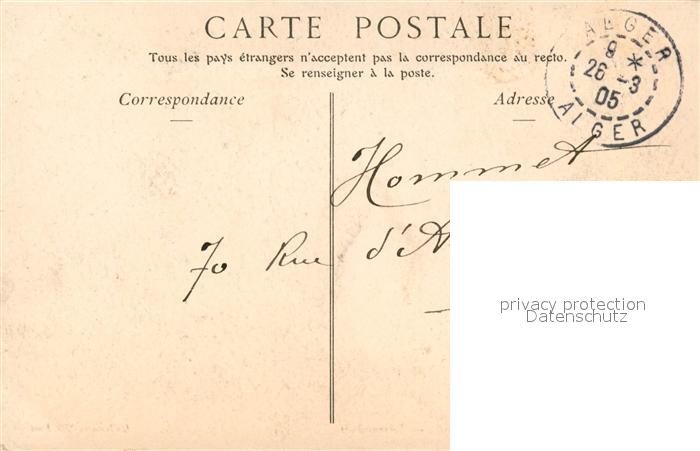 CARTE POSTALE
Tous les pays étrangers n'acceptent pas la correspondance au recto.
Se renseigner à la poste.
Correspondance
Adresse
ALGER
9 *
26 - 3
05
ALGER
Hommet
70 Rue d'A
privacy protection
Datenschutz